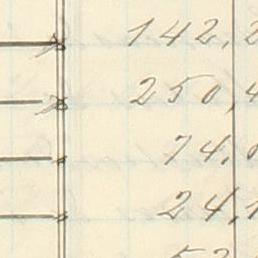 142,2
250,4
74,
24,1
52